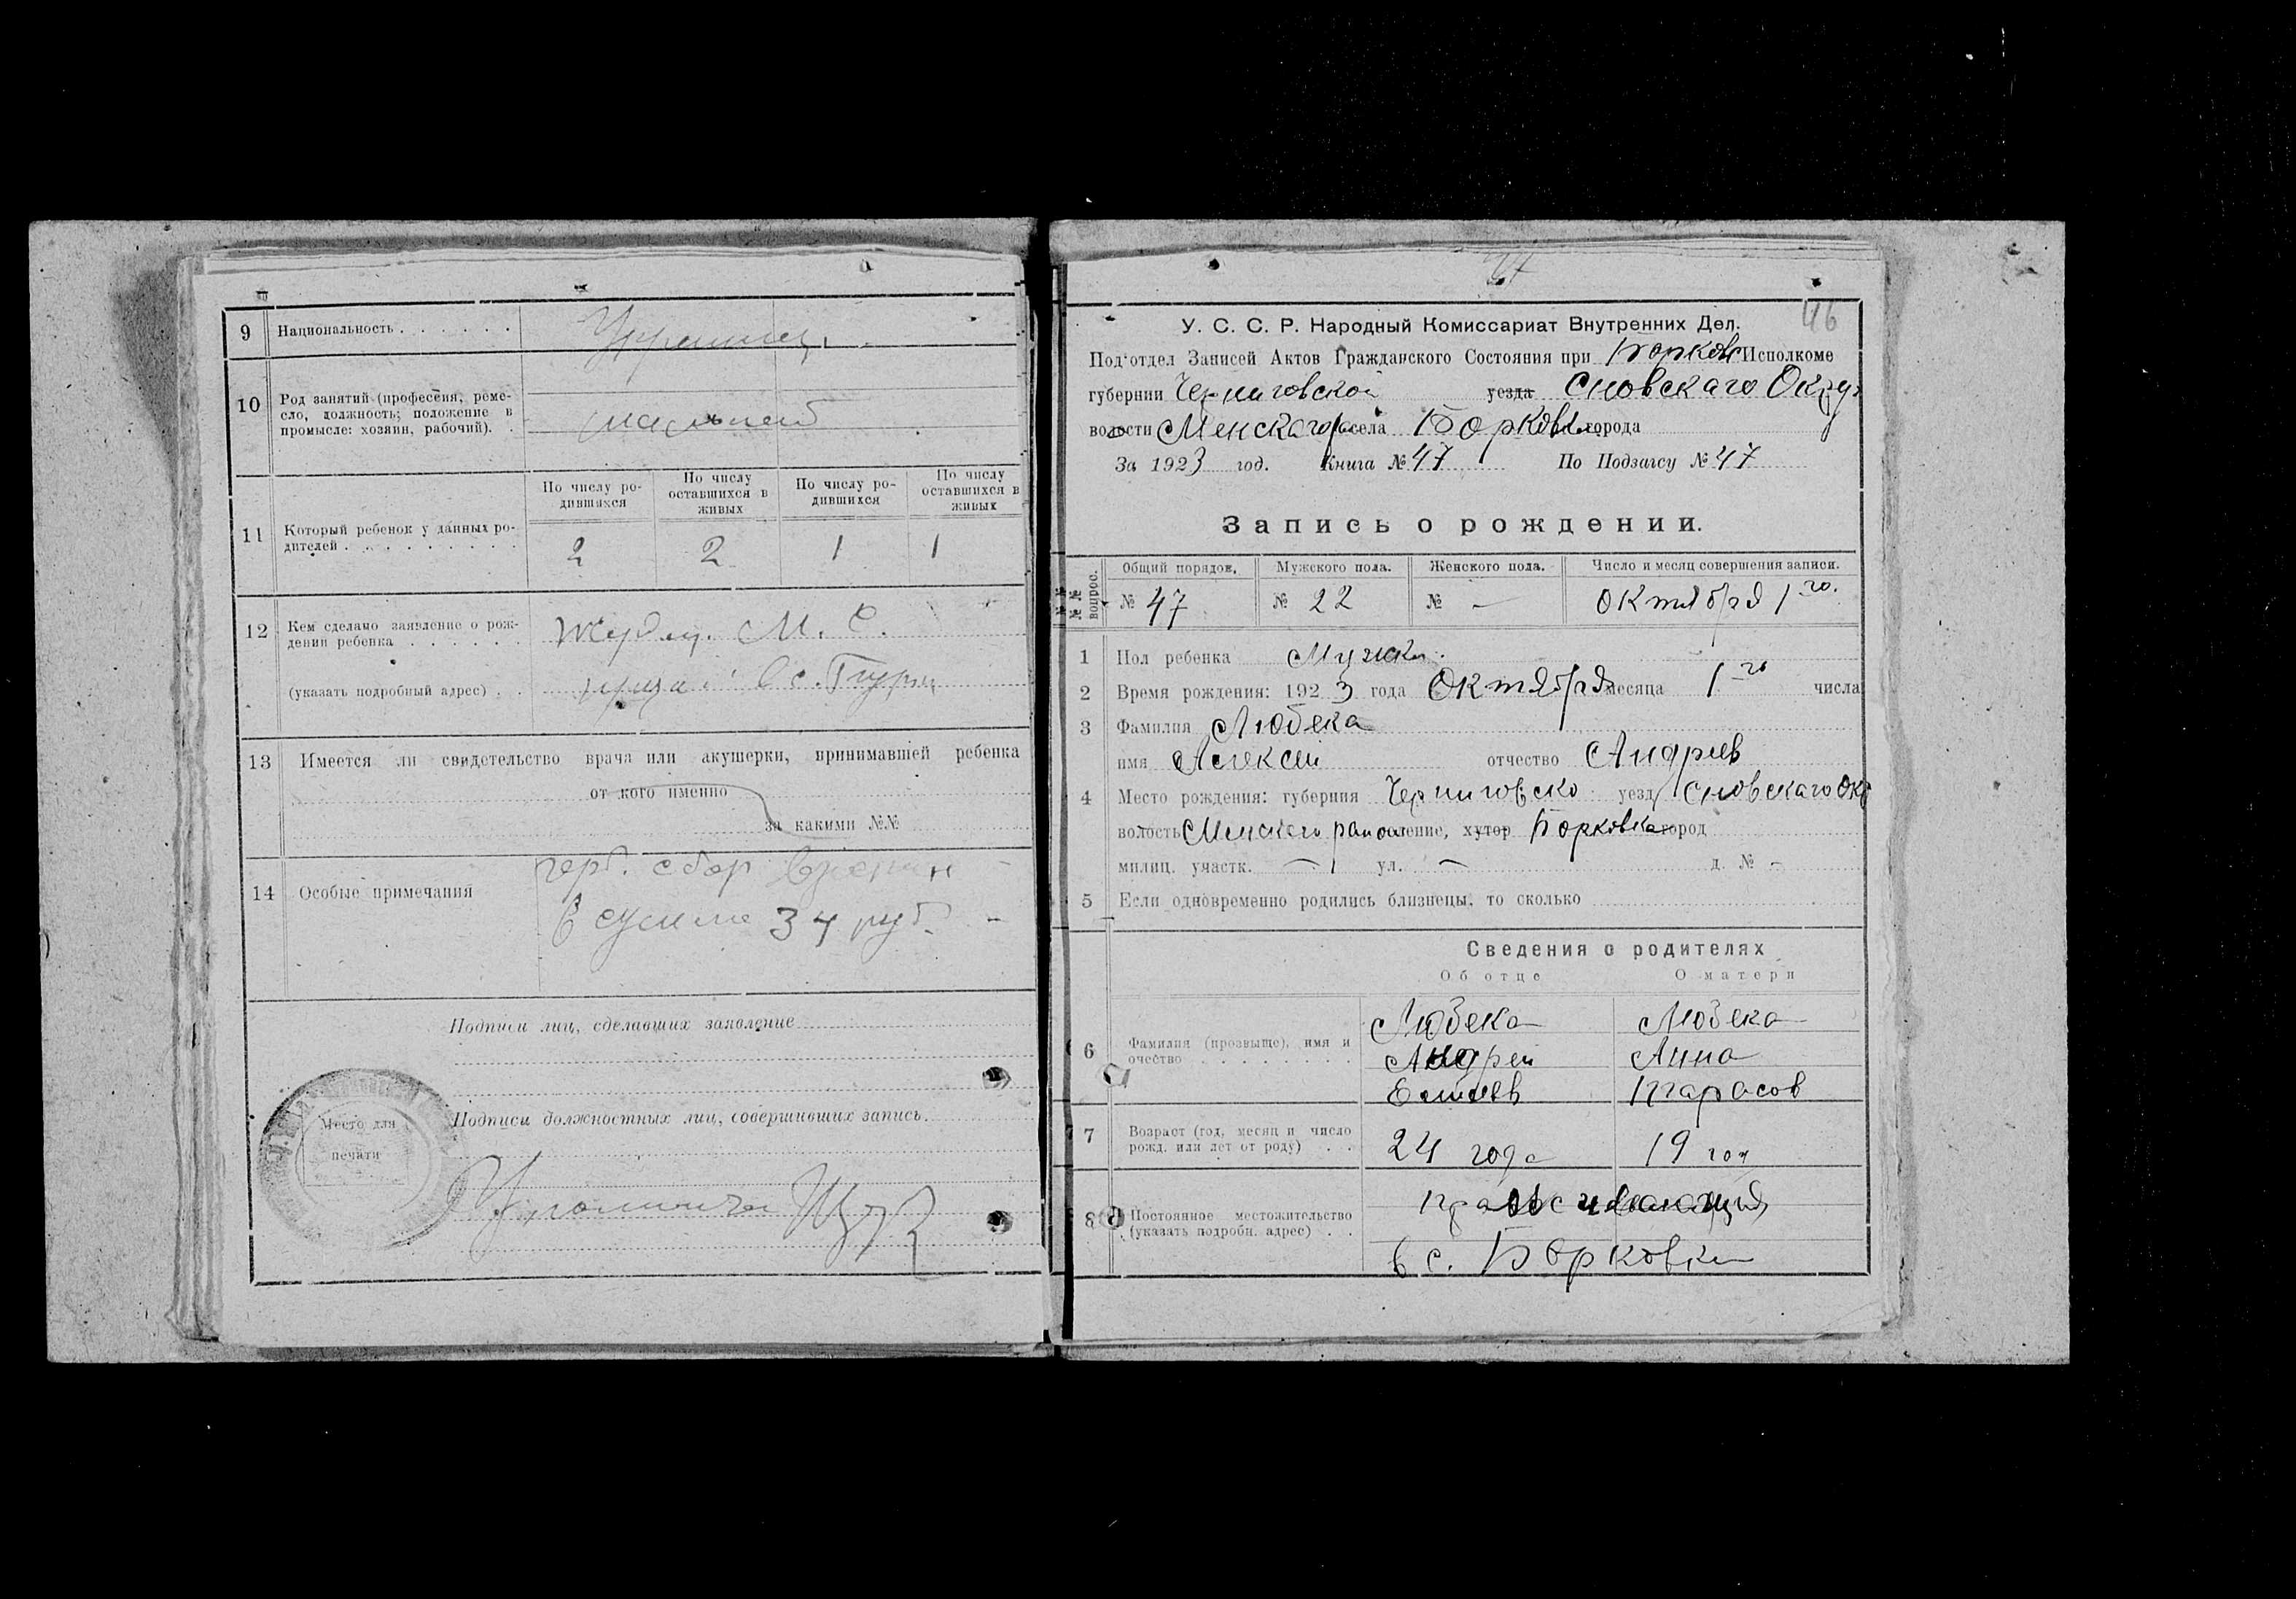 9 Национальность . . . . . .
10 Род занятий (професеия, реме-
сло, должность; положение в
промысле: хозяин, рабочий). .
11 Который ребенок у данных ро-
дителей . . . . . . . . . .
По числу ро-
дившихся
По числу
оставшихся в
живых
По числу ро-
дившихся
По числу
оставшихся в
живых
2 2 1 1
12 Кем сделано заявление о рож-
дении ребенка . . . . . . М. С.
(указать подробный адрес) . . в с.
13 Имеется ли свидетельство врача или акушерки, принимавшей ребенка
от кого именно
за какими №№
14 Особые примечания
герб. сбор
в сумме 34 руб. -
Подписи лиц, сделавших заявление
Место для
печати
Подписи должностных лиц, совершивших запись.
46
У. С. С. Р. Народный Комиссариат Внутренних Дел.
Под'отдел Записей Актов Гражданского Состояния при Борковс Исполкоме
губернии Черниговской уезда Сновскаго Окру
волости Менскаго села Борковка города
За 1923 год. Книга № 47 По Подзагсу № 47
Запись о рождении.
№№ вопрос.
Общий порядов. Мужского пола. Женского пола. Число и месяц совершения записи.
№ 47 № 22 № - Октября 1го.
1 Пол ребенка Мужск.
2 Время рождения: 1923 года Октября месяца 1го числа
3 Фамилия Любека
имя Алексей отчество Андреев
4 Место рождения: губерния Черниговско уезд Сновскаго Окр
волость Менскаго район селение, хутор Борковка город
милиц. участк. - ул. - д. № -
5 Если одновременно родились близнецы, то сколько
Сведения о родителях
Об отце О матери
6 Фамилия (прозвыще), имя и
очество . . . . . . . .
Любека Любека
Андрей Анна
Тарасов
7 Возраст (год, месяц и число
рожд. или лет от роду) . .
24 года 19 год
8 Постоянное местожительство
(указать подробн. адрес) . .
в с. Борковки